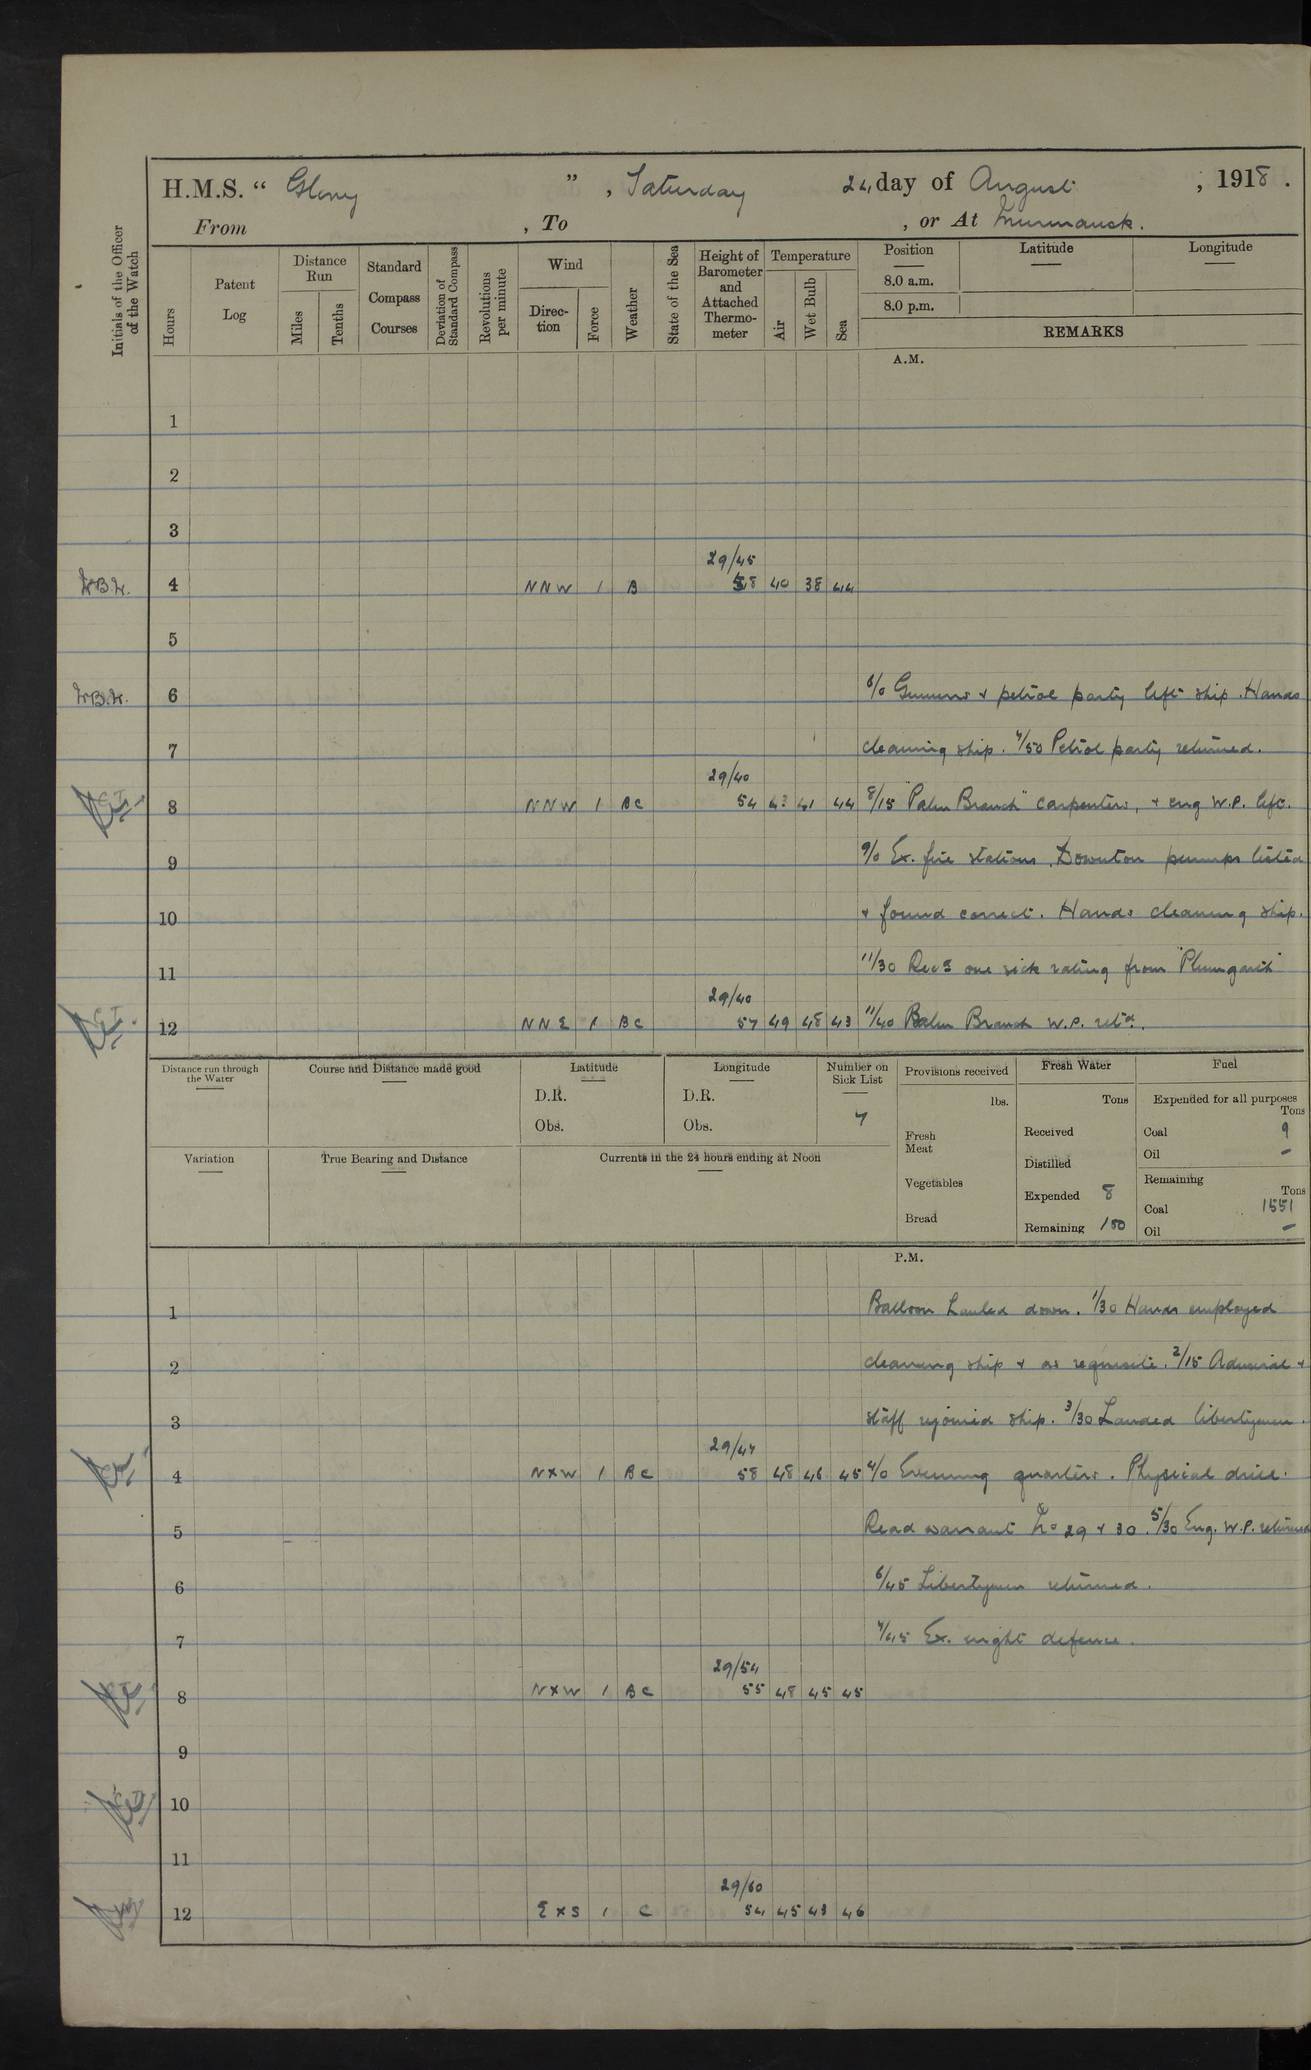 H.M.S. “ Glory ” , Saturday 24 day of August , 1918 .
From , To , or At Murmansk.
Initials of the Officer of the Watch
Hours
Patent Log
Distance Run
Miles
Tenths
Standard Compass Courses
Deviation of Standard Compass
Revolutions per minute
Wind
Direc-tion
Force
Weather
State of the Sea
Height of Barometer and Attached Thermo-meter
Temperature
Air
Wet Bulb
Sea
Position
Latitude
Longitude
8.0 a.m.
8.0 p.m.
REMARKS
A.M.
1
2
3
29/45
4 NNW 1 B 58 40 38 44
5
6 6/0 Gunners & petrol party left ship. Hands
7 cleaning ship. 7/50 Petrol party returned.
29/40
8 NNW 1 BC 54 43 41 44 8/15 "Palm Branch" carpenters, & eng W.P. left.
9 9/0 Ex. fire stations. Downton pumps tested
10 & found correct. Hands cleaning ship.
11 11/30 Recd one sick rating from "Plumgarth"
29/40
12 NNE 1 BC 57 49 48 43 11/40 Palm Branch W.P. retd.
Distance run through the Water
Course and Distance made good
Latitude
D.R.
Obs.
Longitude
D.R.
Obs.
Number on Sick List
7
Provisions received
lbs.
Fresh Meat
Vegetables
Bread
Fresh Water
Tons
Received
Distilled
Expended 8
Remaining 150
Fuel
Expended for all purposes
Tons
Coal 9
Oil –
Remaining
Tons
Coal 1551
Oil –
Variation
True Bearing and Distance
Currents in the 24 hours ending at Noon
P.M.
1 Balloon hauled down. 1/30 Hands employed
2 cleaning ship & as requisite. 2/15 Admiral &
3 staff rejoined ship. 3/30 Landed libertymen.
29/47
4 NxW 1 BC 58 48 46 45 4/0 Evening quarters. Physical drill.
5 Read warrant No 29 & 30. 5/30 Eng. W.P. returned
6 6/45 Libertymen returned.
7 7/45 Ex. night defence.
29/54
8 NxW 1 BC 55 48 45 45
9
10
11
29/60
12 ExS 1 C 54 45 43 46